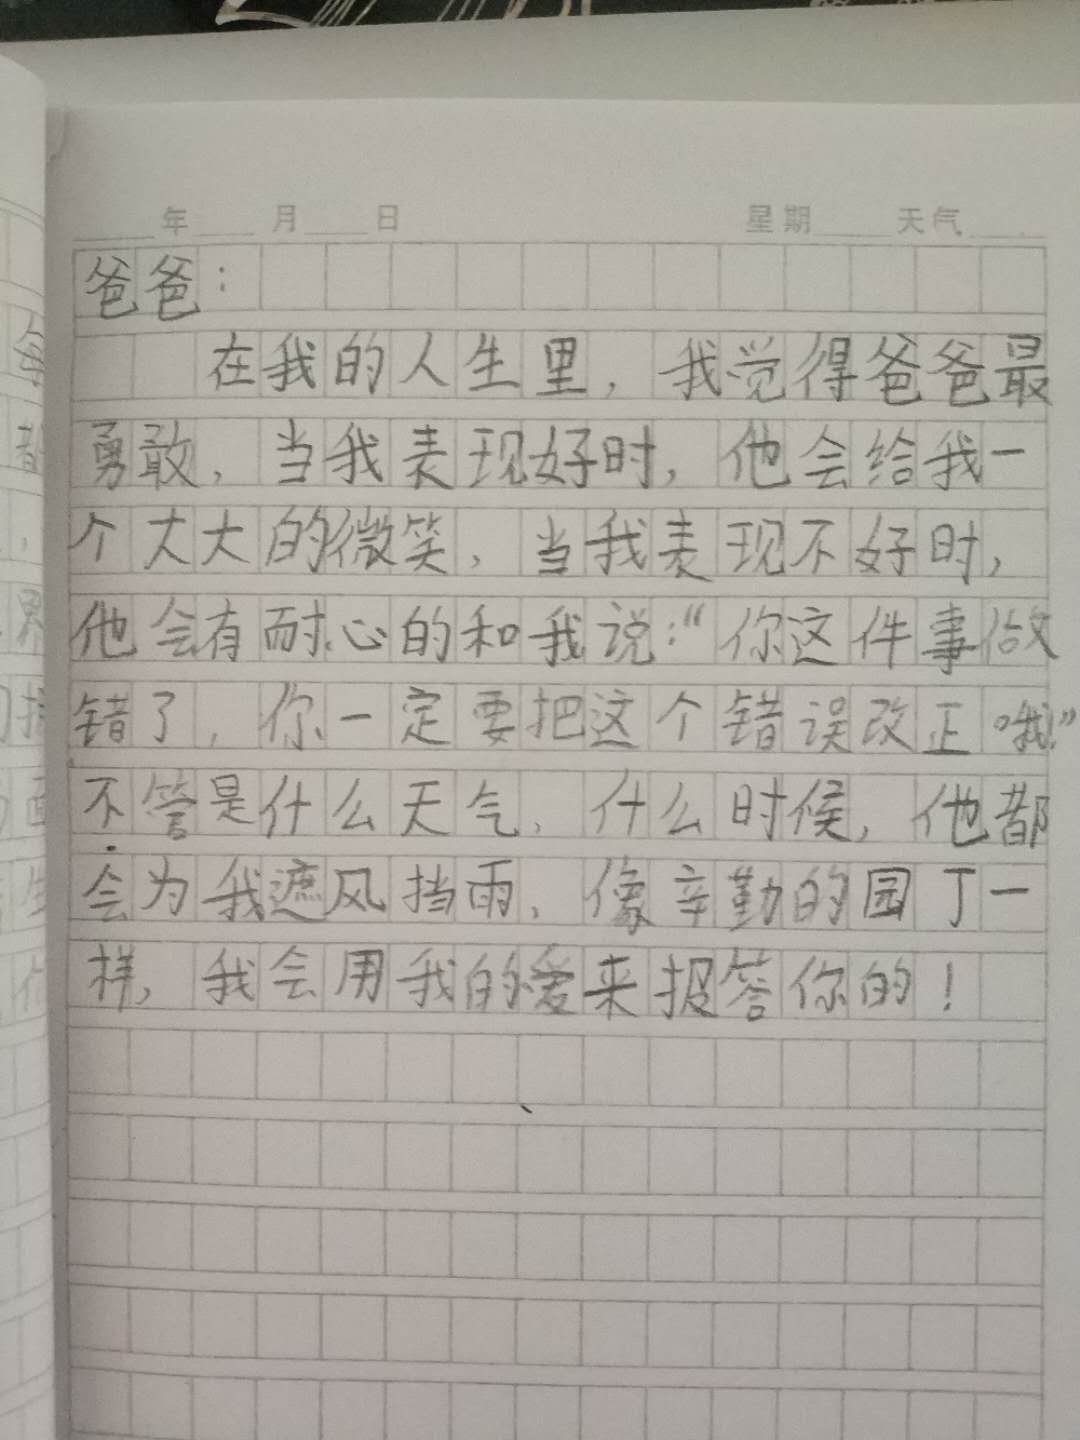 年 月 日 星期 天气
爸爸：
在我的人生里，我觉得爸爸最
勇敢，当我表现好时，他会给我一
个大大的微笑，当我表现不好时，
他会有耐心的和我说：“你这件事做
错了，你一定要把这个错误改正哦！”
不管是什么天气，什么时候，他都
会为我遮风挡雨，像辛勤的园丁一
样，我会用我的爱来报答你的！